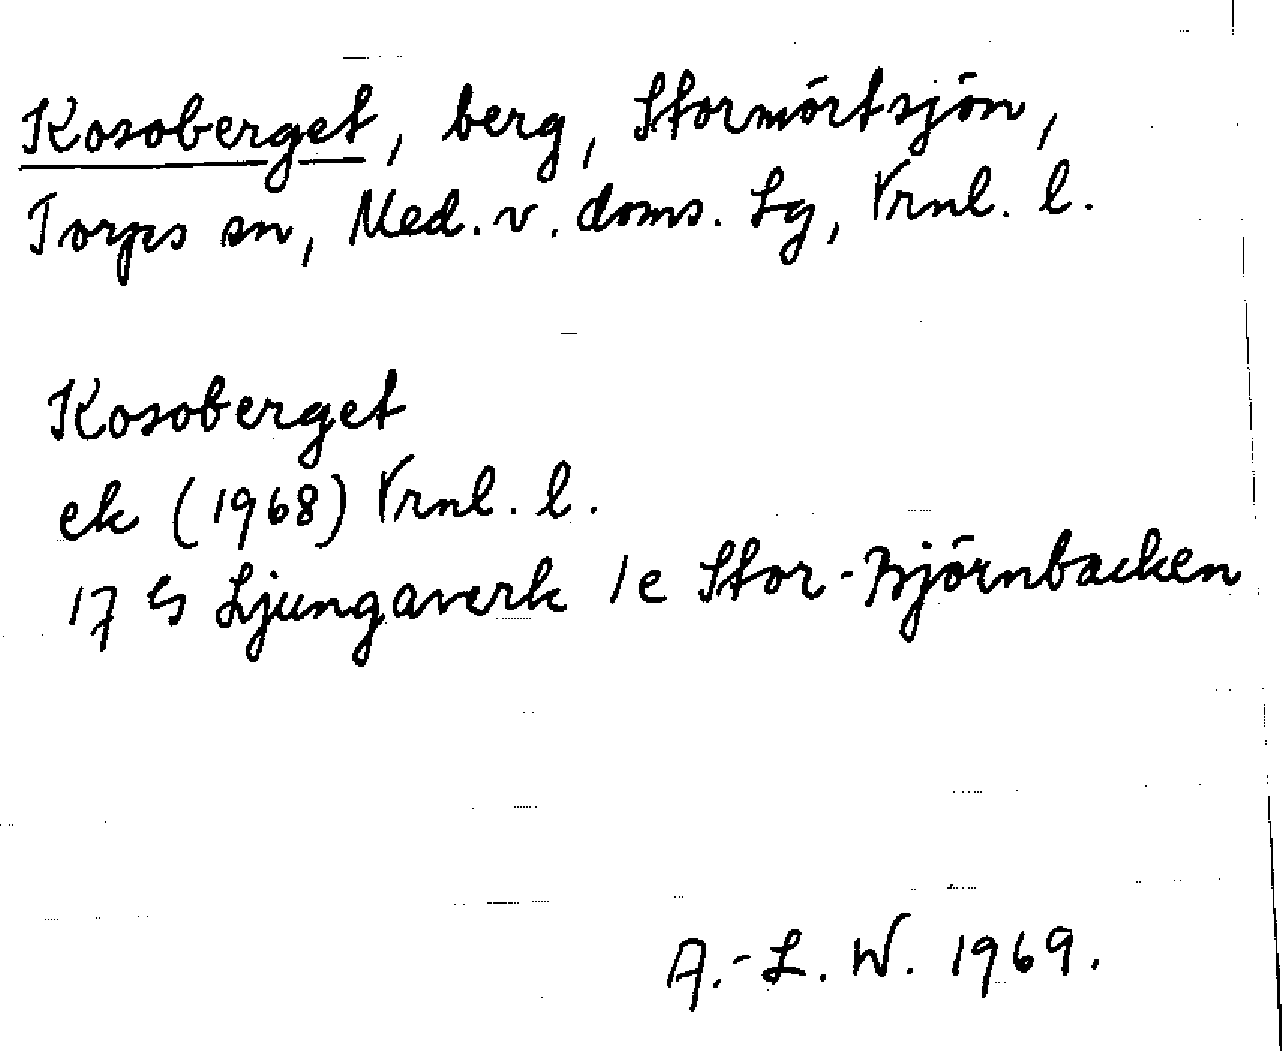 Kosoberget, berg, Stormörtsjön,
Torps sn, Med. v. doms. Lg, Vrnl. l.
Kosoberget
ek (1968) Vrnl. l.
17 G Ljungaverk 1e Stor-Björnbacken
A.-L. W. 1969.